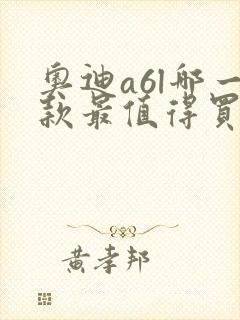 奥迪a6l哪一
款最值得买
黄孝邦